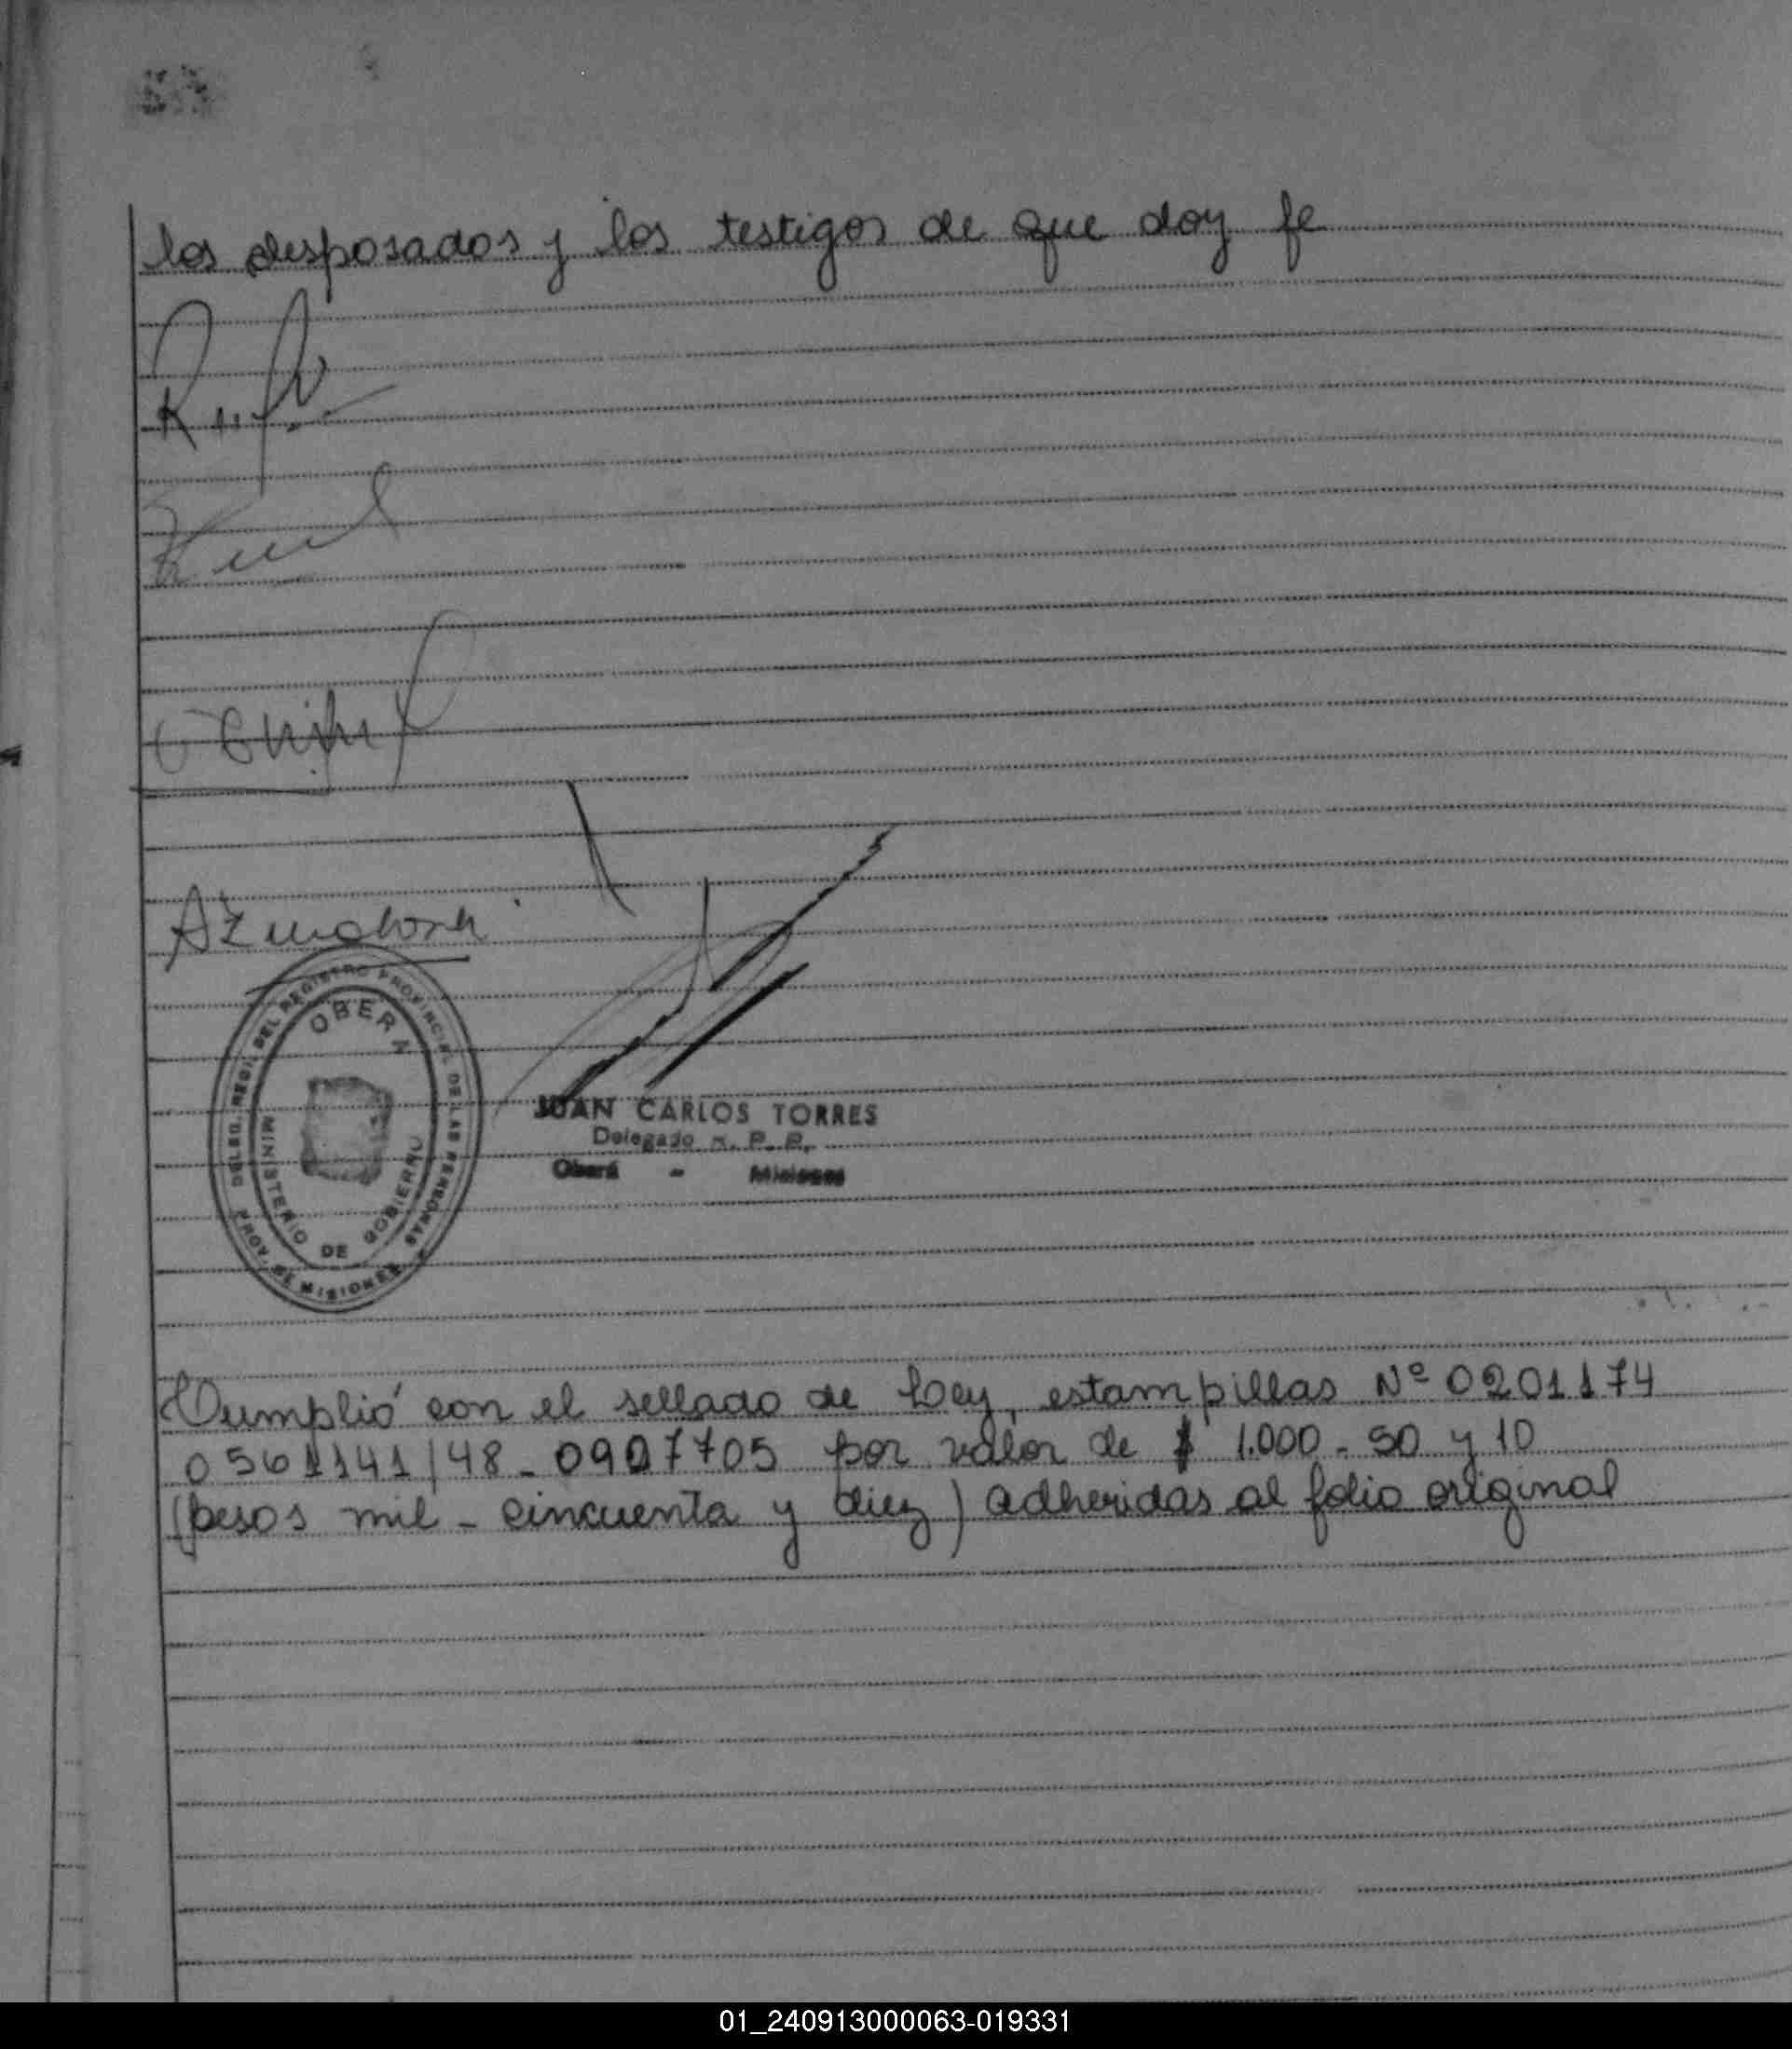 los desposados y los testigos de que doy fe
DELEG. REGI. DEL REGISTRO PROVINCIAL DE LAS PERSONAS
OBERA
MINISTERIO DE GOBIERNO
PROV. DE MISIONES
JUAN CARLOS TORRES
Delegado R. P. P.
Oberá - Misiones
Cumplió con el sellado de Ley, estampillas Nº 0201174
0561141/48 - 0907705 por valor de $ 1.000 - 50 y 10
(pesos mil - cincuenta y diez) adheridas al folio original
01_240913000063-019331